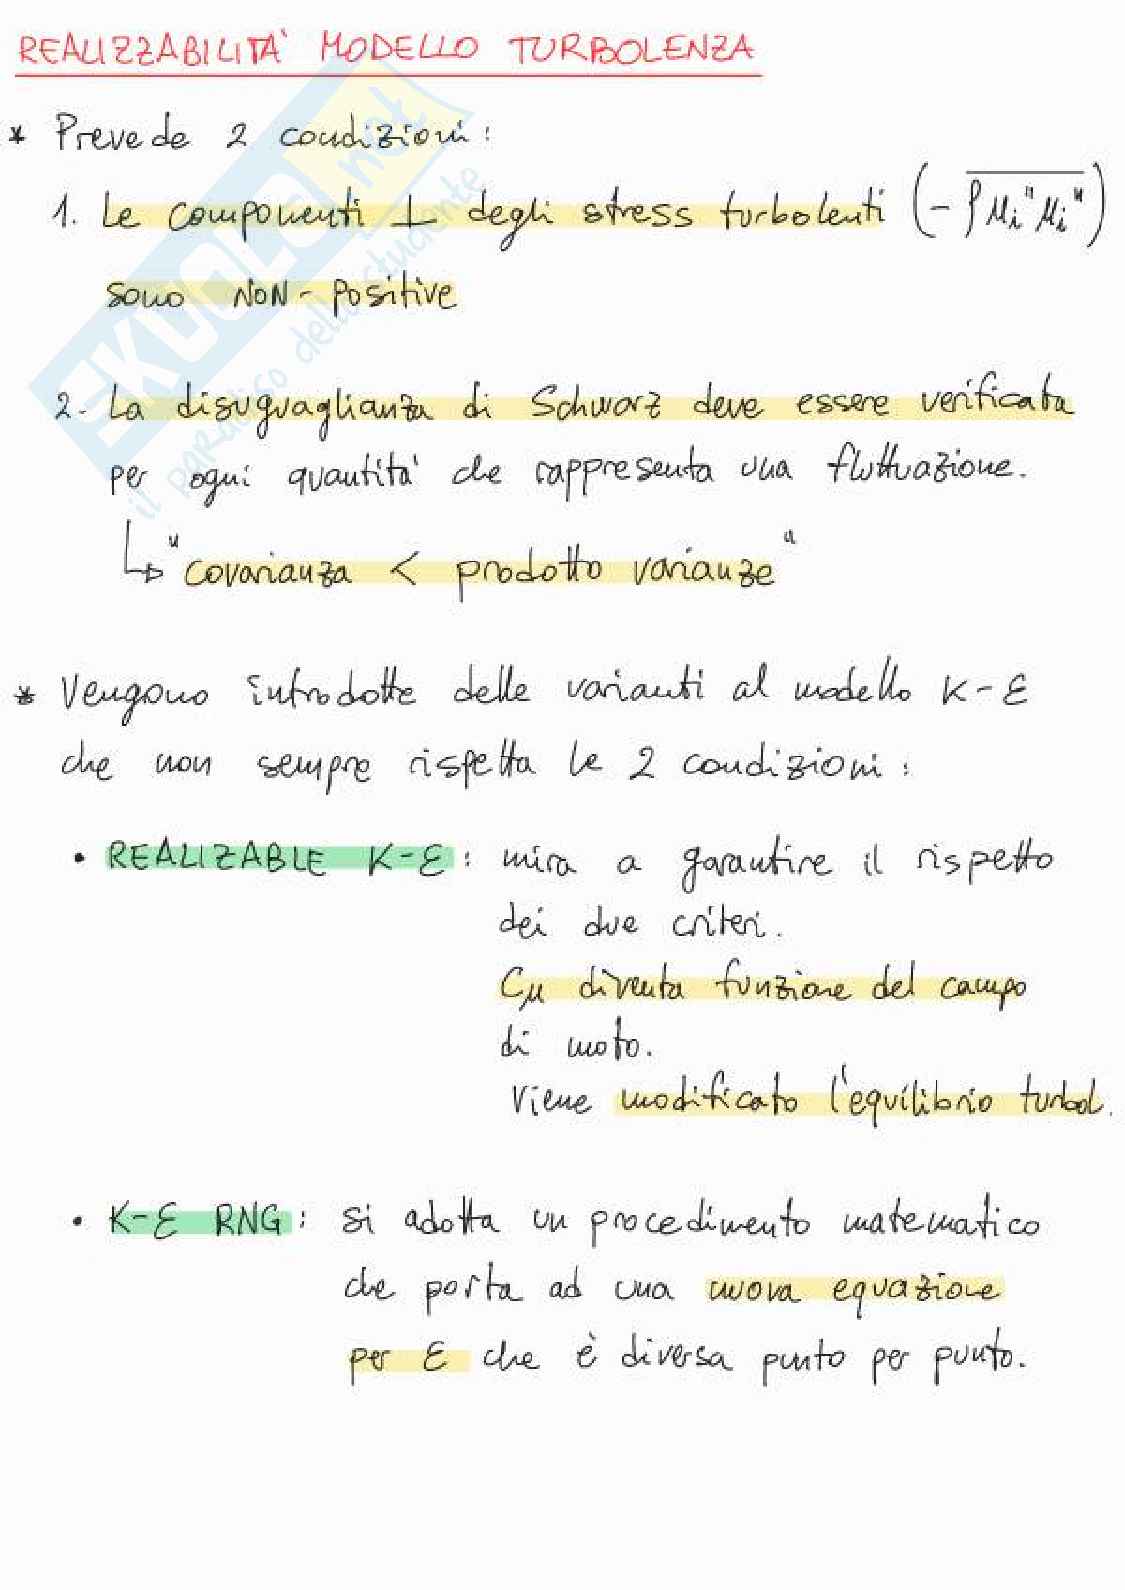 REALIZZABILITA' MODELLO TURBOLENZA
* Prevede 2 condizioni:
1. Le componenti ⊥ degli stress turbolenti (- ρ μi" μi")
sono NON-positive
2. La disuguaglianza di Schwarz deve essere verificata
per ogni quantità che rappresenta una fluttuazione.
↳ "covarianza < prodotto varianze"
* Vengono introdotte delle varianti al modello K-ε
che non sempre rispetta le 2 condizioni:
• REALIZABLE K-ε: mira a garantire il rispetto
dei due criteri.
Cμ diventa funzione del campo
di moto.
Viene modificato l'equilibrio turbol.
• K-ε RNG: si adotta un procedimento matematico
che porta ad una nuova equazione
per ε che è diversa punto per punto.
SKUOLA.net
il paradiso dello studente